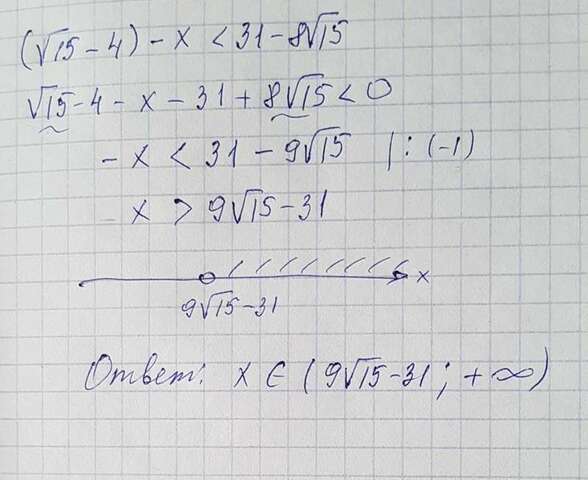 (√15 - 4) - x < 31 - 8√15
√15 - 4 - x - 31 + 8√15 < 0
- x < 31 - 9√15 | : (-1)
x > 9√15 - 31
x
9√15 - 31
Ответ: x ∈ (9√15 - 31; + ∞)